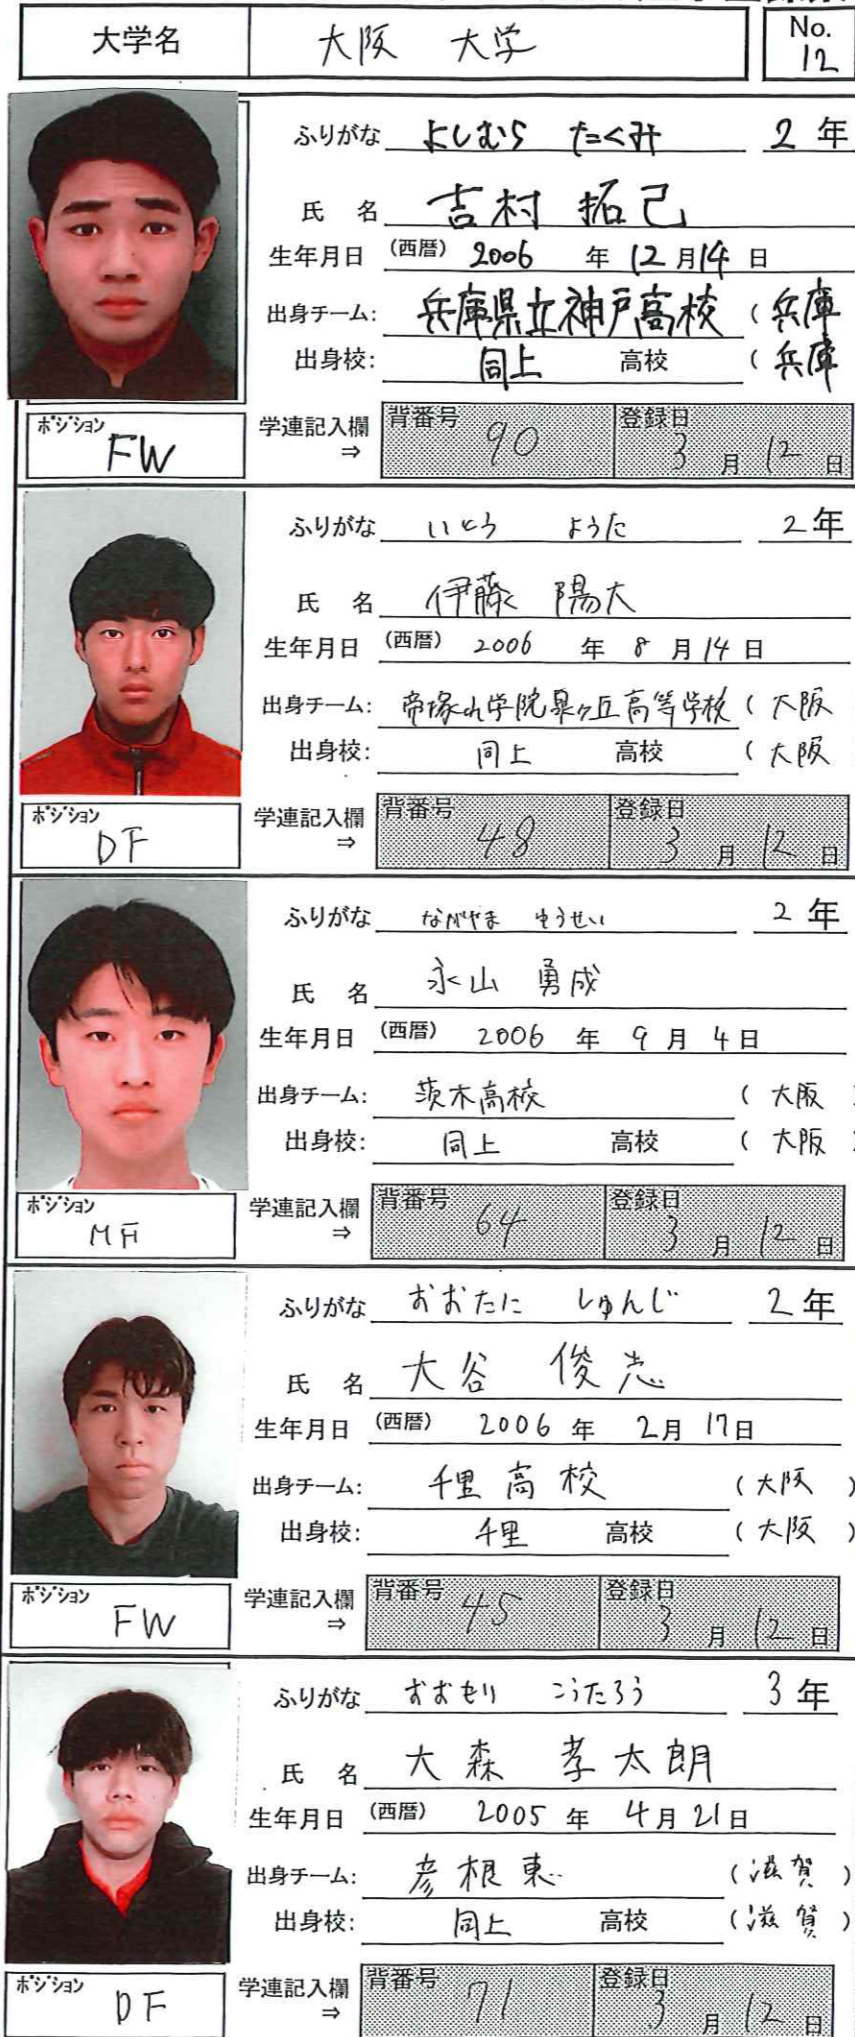 大学名 大阪 大学 No. 12
ふりがな よしむら たくみ 2 年
氏 名 吉村 拓己
生年月日 (西暦) 2006 年 12 月 14 日
出身チーム: 兵庫県立神戸高校 ( 兵庫
出身校: 同上 高校 ( 兵庫
ポジション FW 学連記入欄 ⇒ 背番号 90 登録日 3 月 12 日
ふりがな いとう ようた 2 年
氏 名 伊藤 陽大
生年月日 (西暦) 2006 年 8 月 14 日
出身チーム: 帝塚山学院泉ヶ丘高等学校 ( 大阪
出身校: 同上 高校 ( 大阪
ポジション DF 学連記入欄 ⇒ 背番号 48 登録日 3 月 12 日
ふりがな ながやま ゆうせい 2 年
氏 名 永山 勇成
生年月日 (西暦) 2006 年 9 月 4 日
出身チーム: 茨木高校 ( 大阪
出身校: 同上 高校 ( 大阪
ポジション MF 学連記入欄 ⇒ 背番号 64 登録日 3 月 12 日
ふりがな おおたに しゅんじ 2 年
氏 名 大谷 俊志
生年月日 (西暦) 2006 年 2 月 17 日
出身チーム: 千里高校 ( 大阪 )
出身校: 千里 高校 ( 大阪 )
ポジション FW 学連記入欄 ⇒ 背番号 45 登録日 3 月 12 日
ふりがな おおもり こうたろう 3 年
氏 名 大森 孝太朗
生年月日 (西暦) 2005 年 4 月 21 日
出身チーム: 彦根東 ( 滋賀 )
出身校: 同上 高校 ( 滋賀 )
ポジション DF 学連記入欄 ⇒ 背番号 71 登録日 3 月 12 日